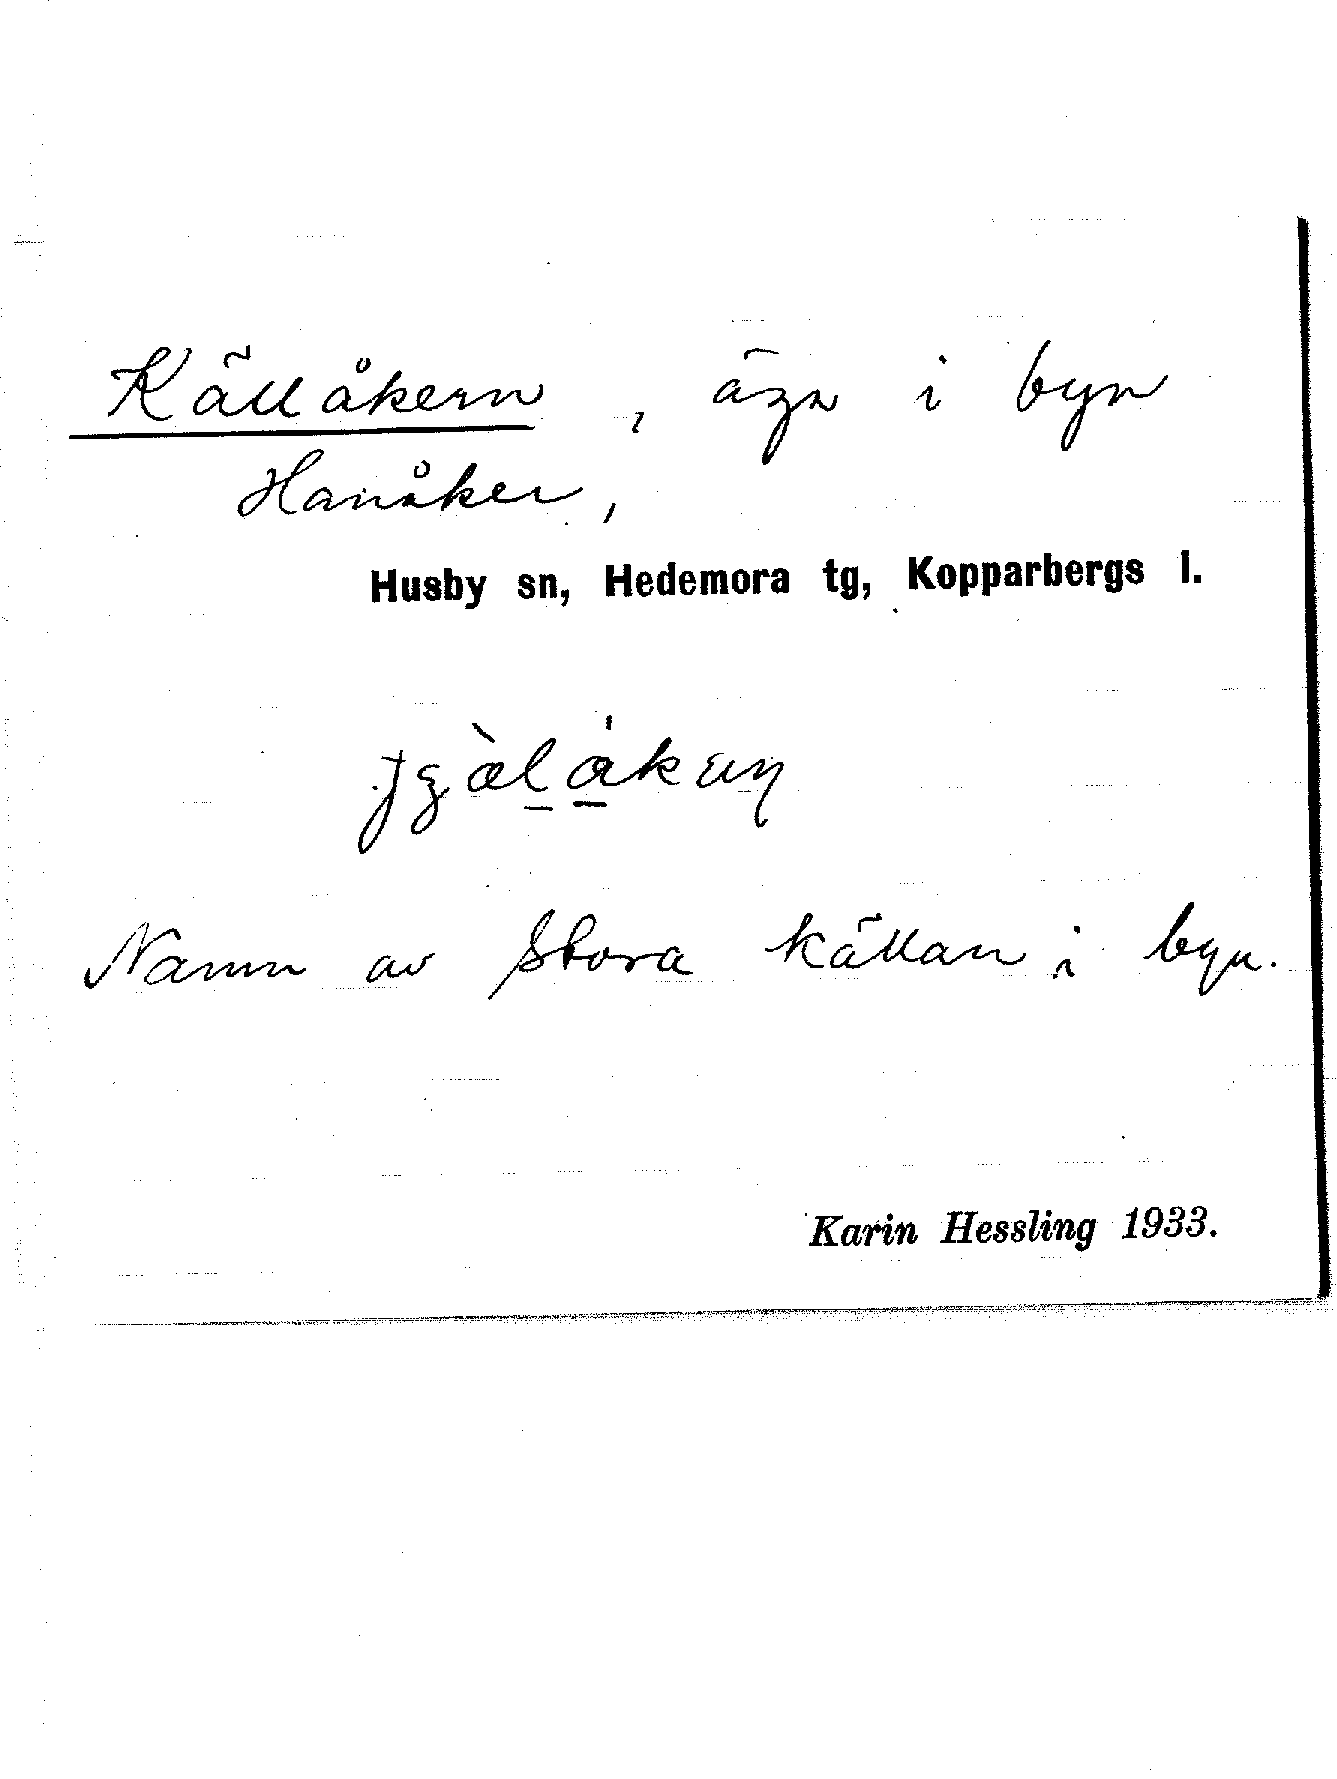 Källåkern, äga i byn
Hanåker,
Husby sn, Hedemora tg, Kopparbergs l.
Namn av Stora källan i byn.
Karin Hessling 1933.